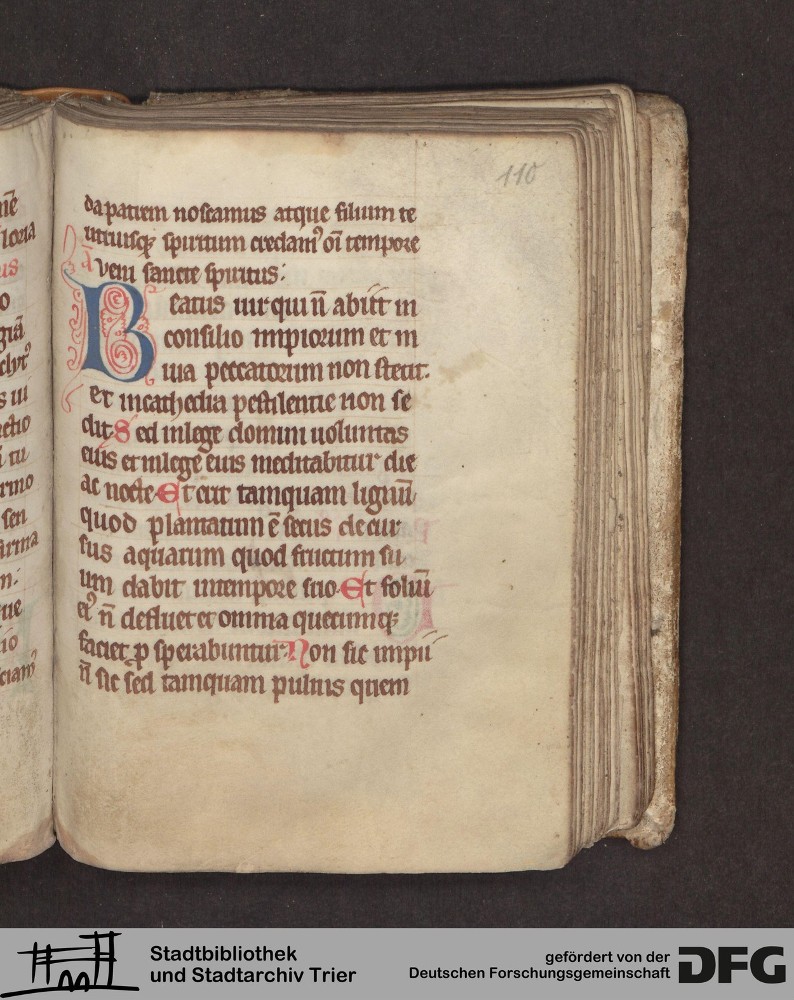 110
da patrem noscamus atque filium te
utriusq; spiritum credam᷒ oī tempore
ā Veni sancte spiritus:
Beatus uir qui n̄ abiit in
consilio impiorum et in
uia peccatorum non stetit.
et incathedra pestilentie non se
dit Sed inlege domini uoluntas
eius et inlege eius meditabitur die
ac nocte Et erit tamquam lignū
quod plantatum ē secus decur
sus aquarum quod fructum su
um dabit intempore suo Et foliū
ei᷒ n̄ defluet et omnia quecumq;
faciet p̄sperabuntur Non sic impii
n̄ sic sed tamquam puluis quem
Stadtbibliothek
und Stadtarchiv Trier
gefördert von der
Deutschen Forschungsgemeinschaft
DFG